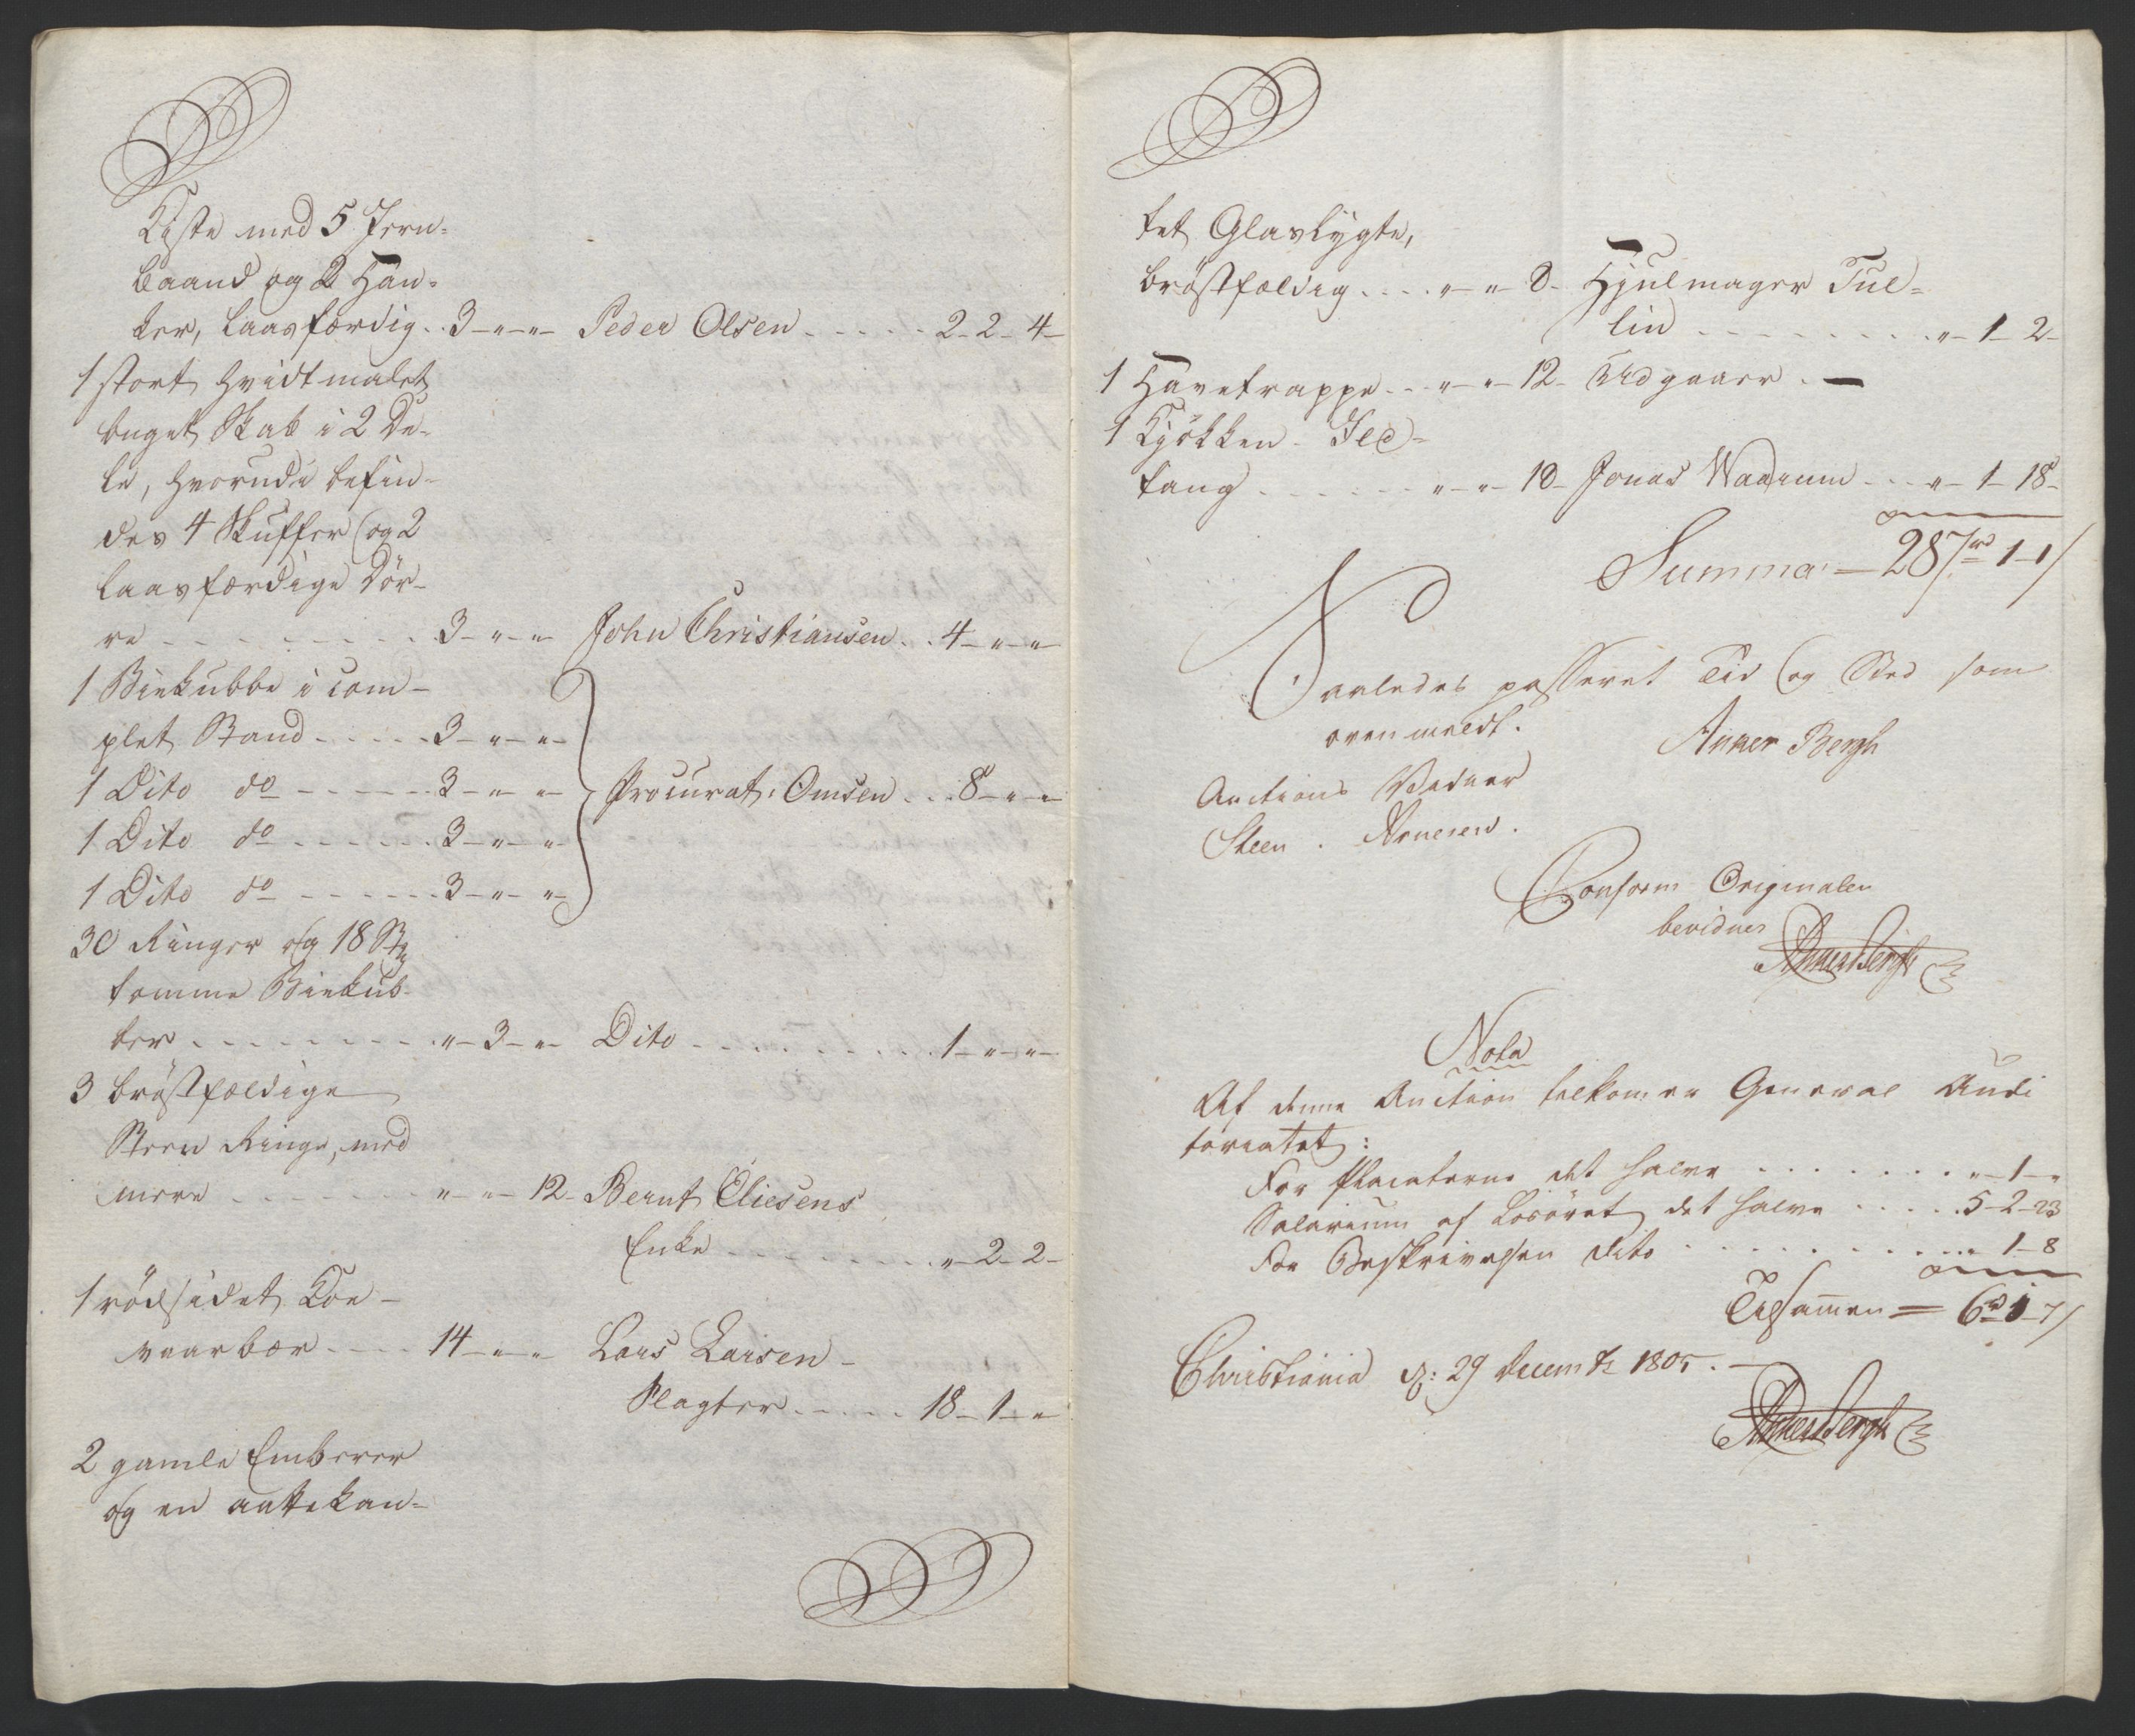 Kiste med 5 Jern-
baand og 2 Han-
ker, laasfærdig . . 3 - " - " - Peder Olsen - - - - - 2 - 2 - 4 -
1 stort hvidtmalet
buget Skab i 2 De-
le, hvorudi befin-
des 4 Skuffer og 2
laasfærdige Dör-
re - - - - - - - - 3 - " - " John Christiansen . . 4 - " - "
1 Biekubbe i com-
plet Stand - - - - - 3 - " - " -
1 Dito do - - - - - - 3 - " - " - Procurat: Omsen . . . 8 - " - "
1 Dito do - - - - - - 3 - " - " -
1 Dito do - - - - - - 3 - " - " -
30 Ringer og 18 St
tomme Biekub-
ber - - - - - - - - " - 3 - " - Dito - - - - - - - - 1 - " - "
3 bröstfældige
Steen Ringe, med
mere - - - - - - " - " - 12 - Bernt Eliesens
Enke - - - - - - - " - 2 - 2 -
1 rödsidet Koe -
vaarbær - - - - 14 - " - " Lars Larsen -
Slagter - - - - - 18 - 1 - "
2 gamle Emberer
og en aattekan-
tet Glaslygte,
bröstfældig . . . . " - " 8 - Hjulmager Tul-
lin - - - - - - - - - " - 1 - 2 -
1 Havetrappe - - - " - " - 12 - Udgaaer . -
1 Kjökken - Ild-
tang - - - - - - " - " - 10 - Jonas Waarum - - - " - 1 - 18 -
Summa = 287 rd 1 - 1 /
Saaledes passeret Tid og Sted som
ovenmeldt. Anker Bergh
Auctions Vidner
Steen . Arnesen .
Conform Originalen
bevidner
Anker Bergh
Nota
Af denne Auction tilkommer General Audi
toriatet :
For Placaterne det halve . . . . . . . . " - 1 - "
Salarium af Losöret det halve . . . . . 5 - 2 - 23
For Beskrivelsen dito . . . . . . . . . " 1 - 8
Tilsamen = 6 rd 1 - 7 /
Christiania d: 29 Decembr 1805 . -
Anker Bergh